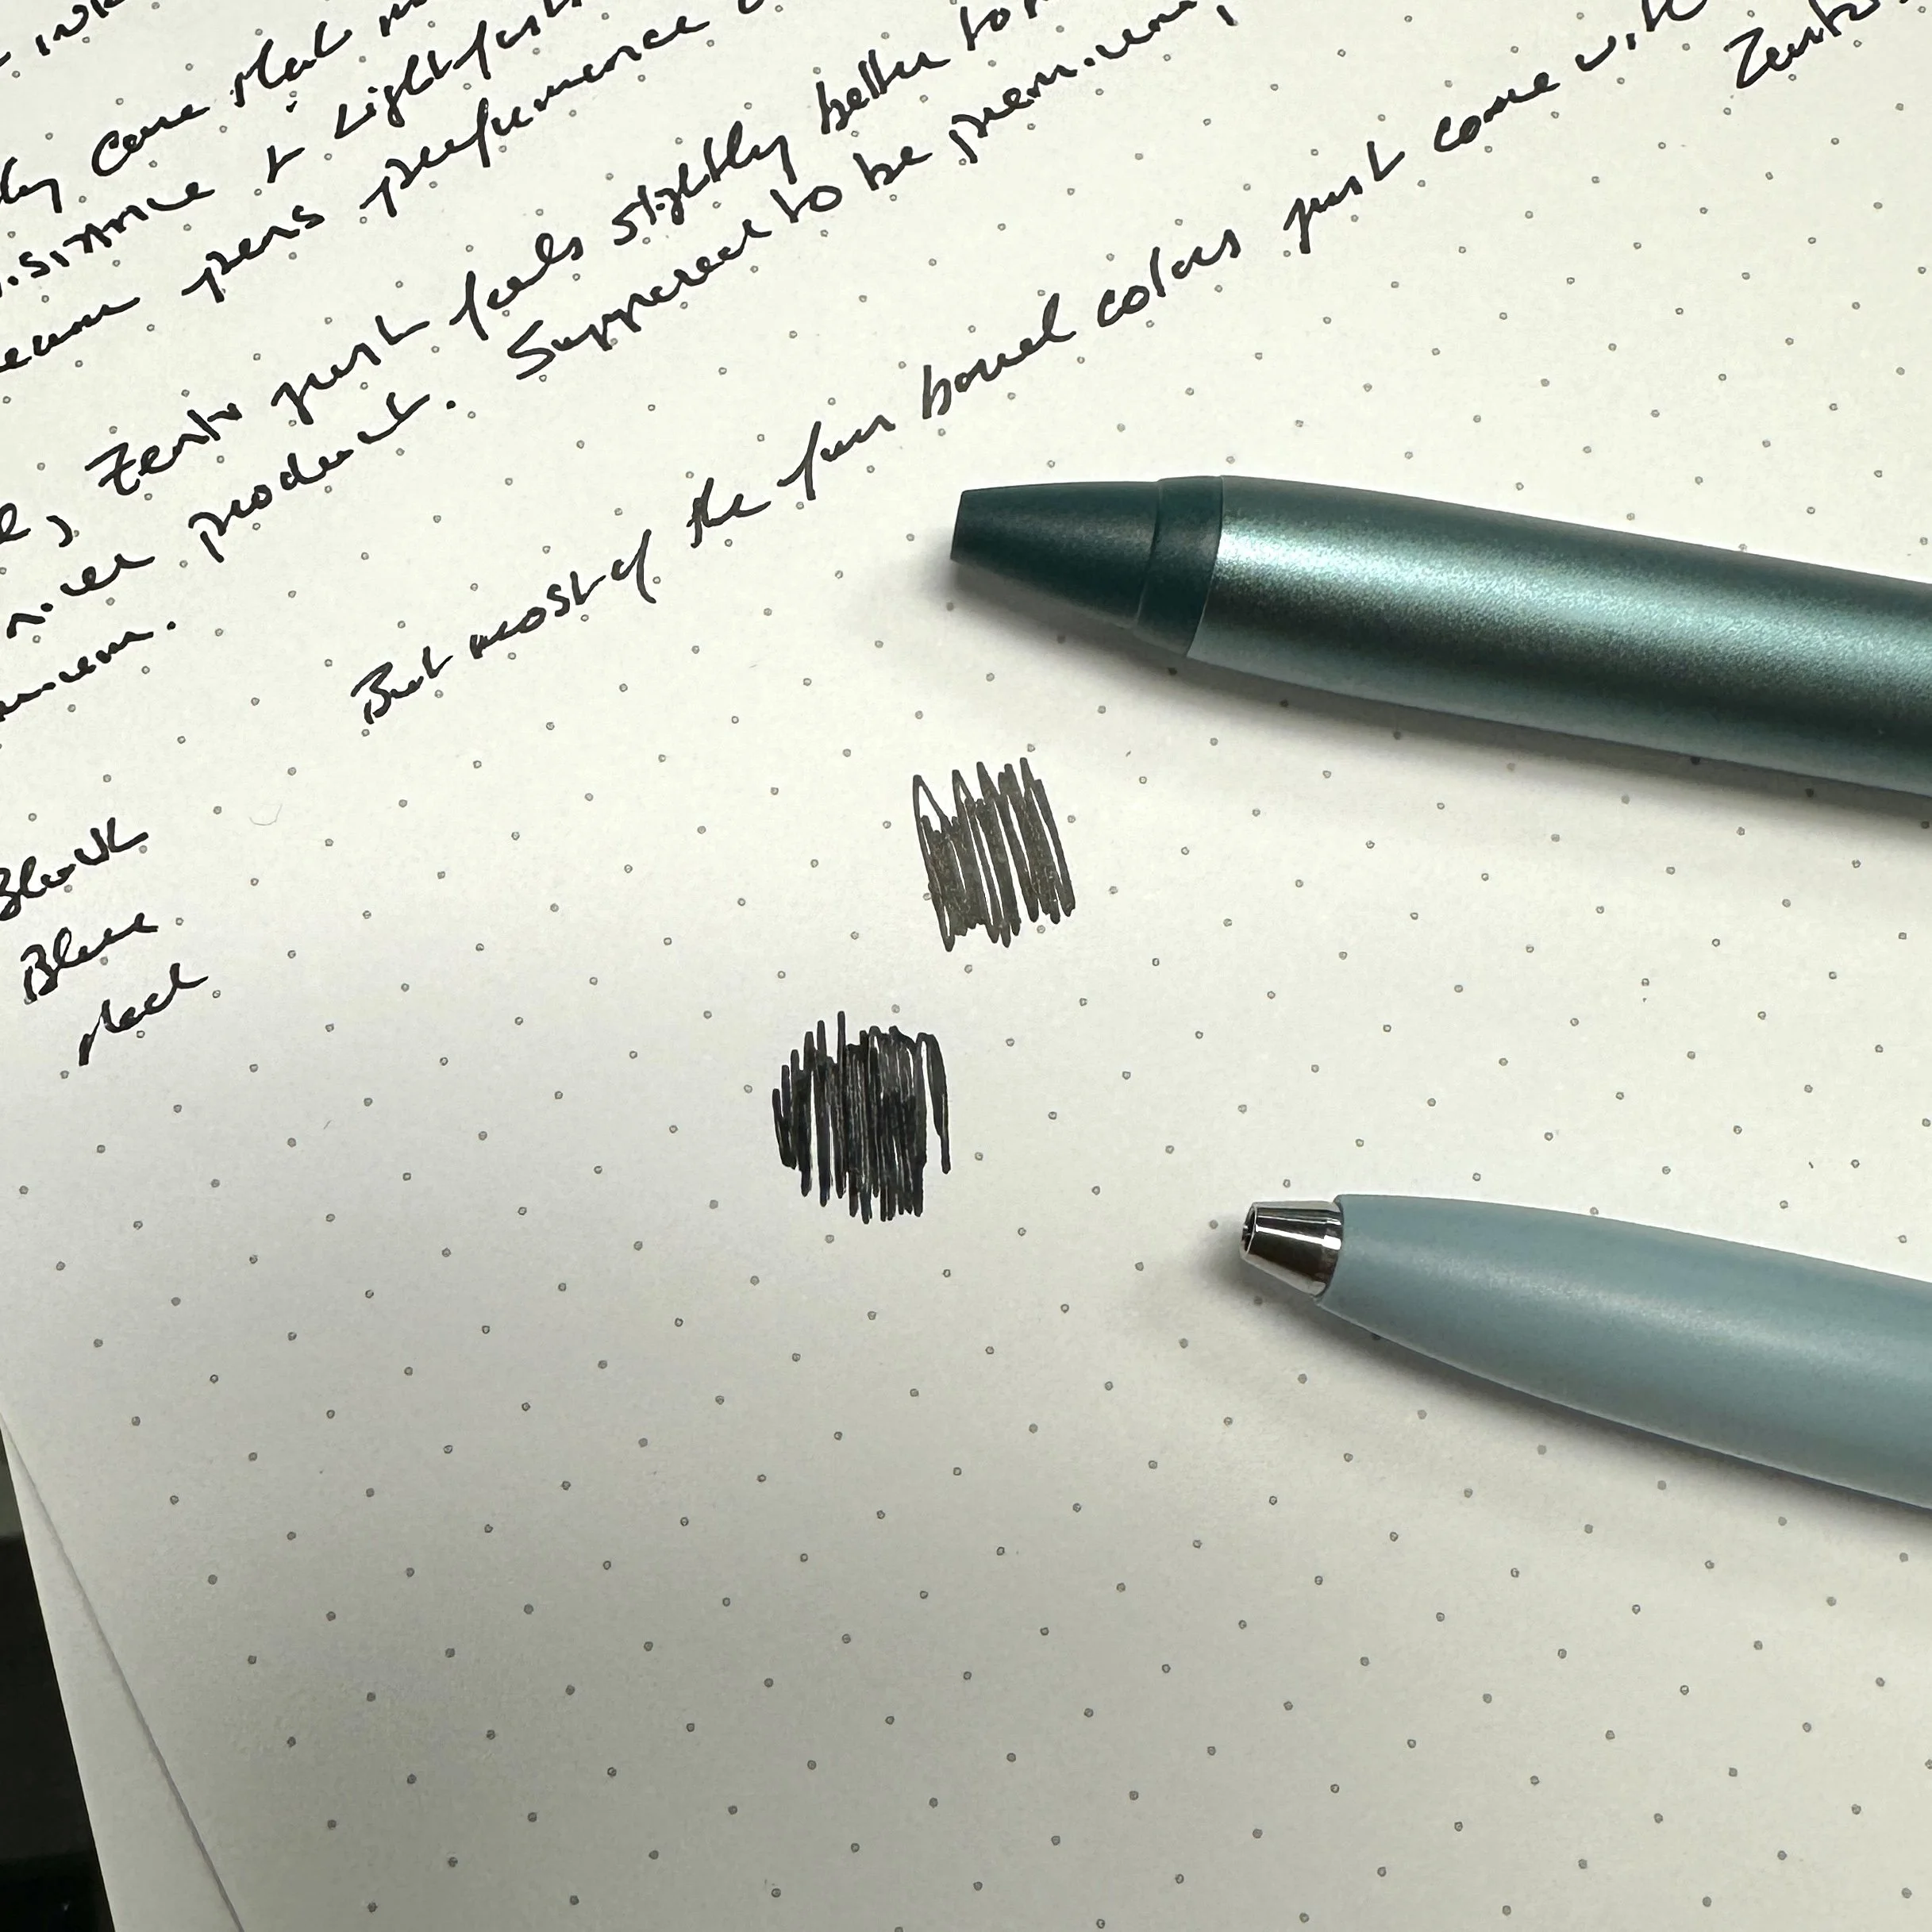 care that
resistance + Lightfast
pens performance
Zento just feels slightly better to
nicer product. Supposed to be premium,
premium.
But most of the fun barrel colors just come with
Zento
Black
Blue
Red